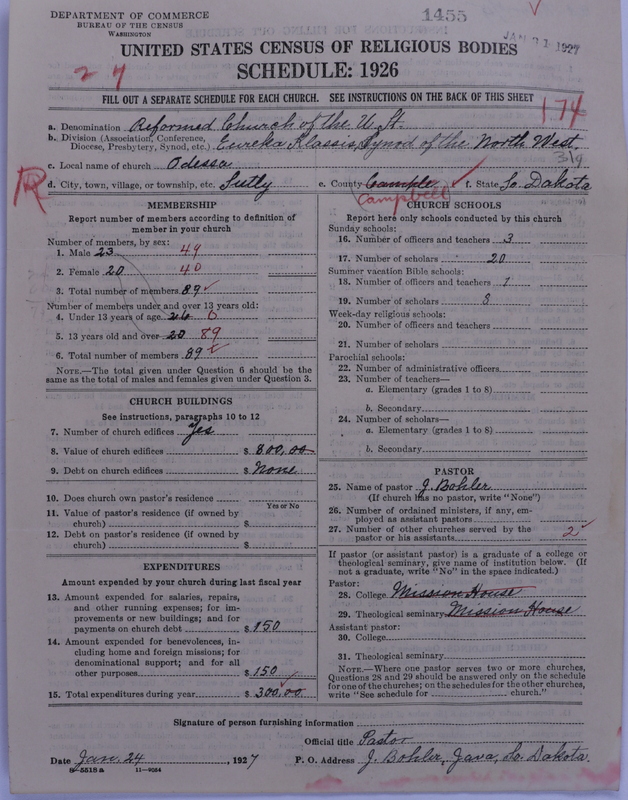 DEPARTMENT OF COMMERCE
BUREAU OF THE CENSUS
WASHINGTON
1455
JAN 31 1927
UNITED STATES CENSUS OF RELIGIOUS BODIES
SCHEDULE: 1926
2 4
FILL OUT A SEPARATE SCHEDULE FOR EACH CHURCH. SEE INSTRUCTIONS ON THE BACK OF THIS SHEET
174
a. Denomination Reformed Church of the U. St.
b. Division (Association, Conference, Diocese, Presbytery, Synod, etc.) Eureka Klassis, Synod of the North West.
319
c. Local name of church Odessa
R
d. City, town, village, or township, etc. e. County Campbell f. State So. Dakota
MEMBERSHIP
Report number of members according to definition of
member in your church
Number of members, by sex:
1. Male 23 49
2. Female 20 40
3. Total number of members 89
Number of members under and over 13 years old:
4. Under 13 years of age 0
5. 13 years old and over 20 89
6. Total number of members 89
NOTE.—The total given under Question 6 should be
same as the total of males and females given under Question 3.
CHURCH BUILDINGS
See instructions, paragraphs 10 to 12
7. Number of church edifices Yes
8. Value of church edifices $ 800,00
9. Debt on church edifices $ None
10. Does church own pastor's residence
Yes or No
11. Value of pastor's residence (if owned by
church) $
12. Debt on pastor's residence (if owned by
church) $
EXPENDITURES
Amount expended by your church during last fiscal year
13. Amount expended for salaries, repairs,
and other running expenses; for im-
provements or new buildings; and for
payments on church debt $ 150
14. Amount expended for benevolences, in-
cluding home and foreign missions; for
denominational support; and for all
other purposes $ 150
15. Total expenditures during year $ 300,00
CHURCH SCHOOLS
Report here only schools conducted by this church
Sunday schools:
16. Number of officers and teachers 3
17. Number of scholars 20
Summer vacation Bible schools:
18. Number of officers and teachers 1
19. Number of scholars 8
Week-day religious schools:
20. Number of officers and teachers
21. Number of scholars
Parochial schools:
22. Number of administrative officers
23. Number of teachers—
a. Elementary (grades 1 to 8)
b. Secondary
24. Number of scholars—
a. Elementary (grades 1 to 8)
b. Secondary
PASTOR
25. Name of pastor J. Bohler
(If church has no pastor, write "None")
26. Number of ordained ministers, if any, em-
ployed as assistant pastors
27. Number of other churches served by the
pastor or his assistants 2
If pastor (or assistant pastor) is a graduate of a college or
theological seminary, give name of institution below. (If
not a graduate, write "No" in the space indicated.)
Pastor:
28. College Mission House
29. Theological seminary Mission House
Assistant pastor:
30. College
31. Theological seminary
NOTE.—Where one pastor serves two or more churches,
Questions 28 and 29 should be answered only on the schedule
for one of the churches; on the schedules for the other churches,
write "See schedule for church."
Signature of person furnishing information
Official title Pastor
Date Jan. 24, 1927 P. O. Address J. Bohler, Java, So. Dakota.
8—5518a 11—9034